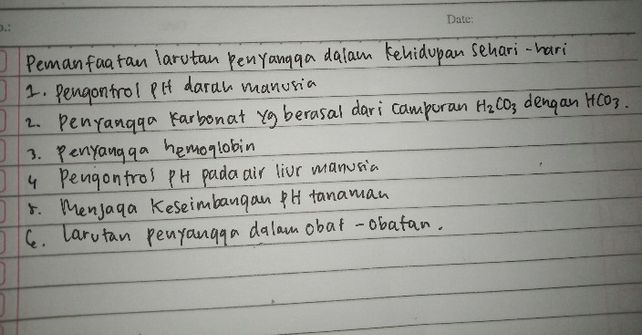 Date:
Pemanfaatan larutan penyangga dalam kehidupan sehari-hari
1. Pengontrol PH darah manusia
2. Penyangga Karbonat yg berasal dari campuran H₂CO₃ dengan HCO₃.
3. Penyangga hemoglobin
4 Pengontrol PH pada air liur manusia
5. Menjaga Keseimbangan PH tanaman
6. Larutan penyangga dalam obat-obatan.